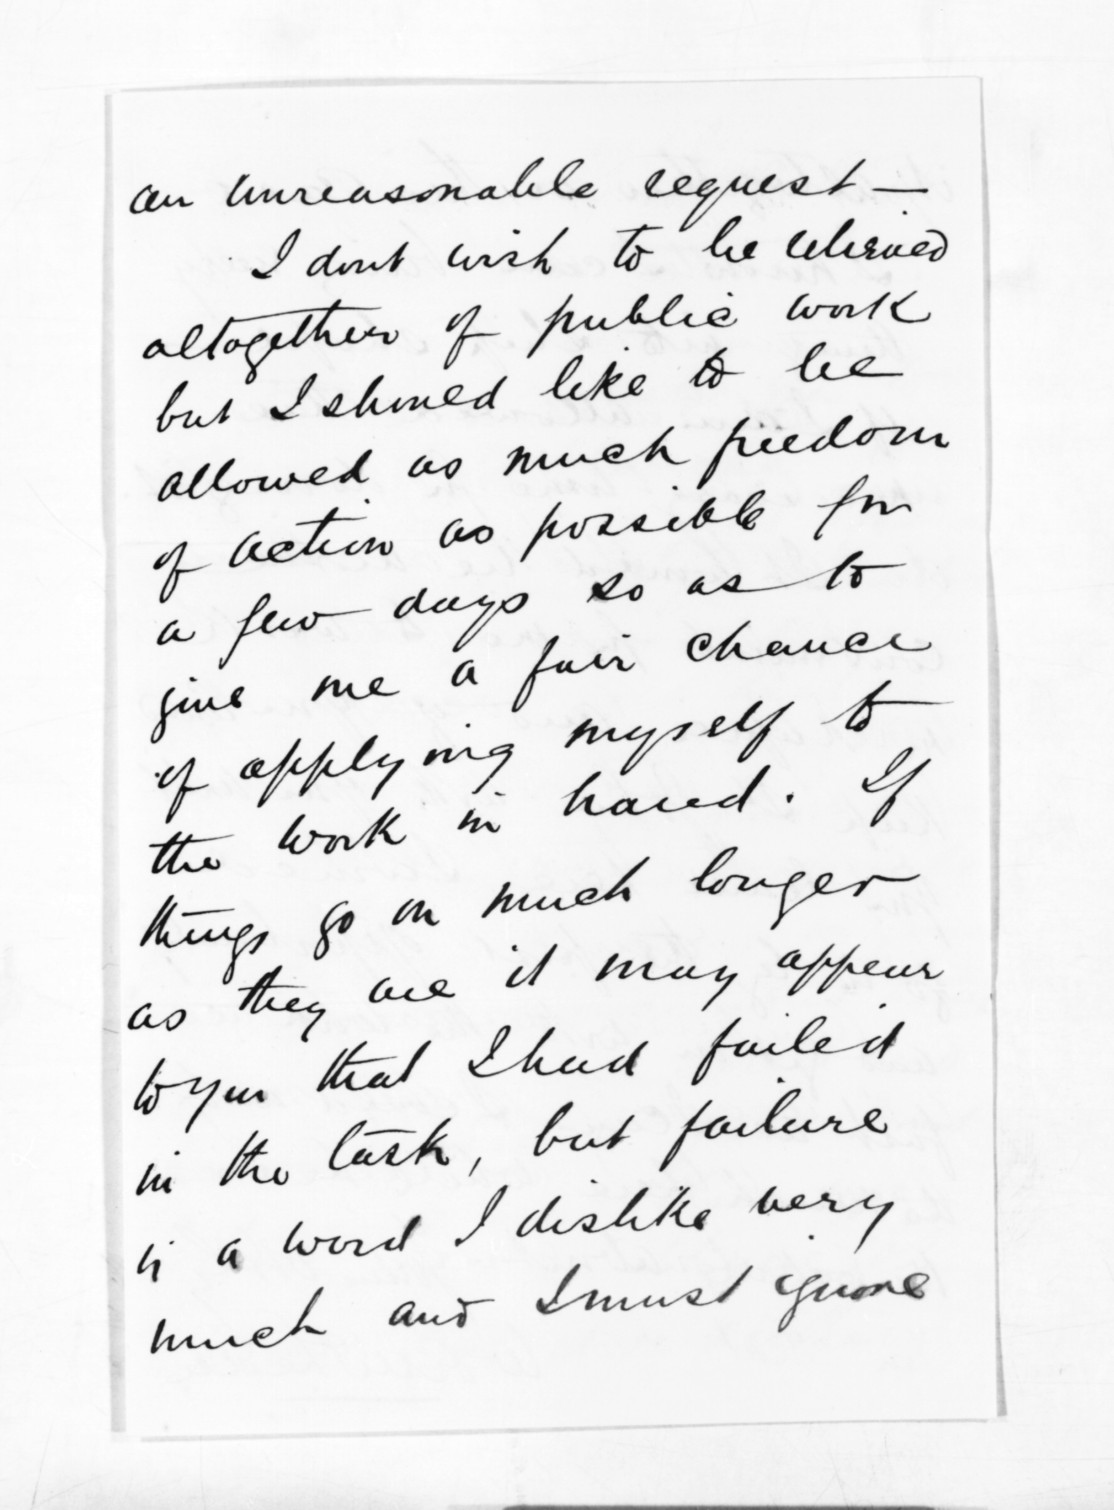 an unreasonable request —
I dont wish to be relieved
altogether of public work
but I should like to be
allowed as much freedom
of action as possible for
a few days so as to
give me a fair chance
of applying myself to
the work in hand. If
things go on much longer
as they are it may appear
to you that I had failed
in the task, but failure
is a word I dislike very
much and I must ignore